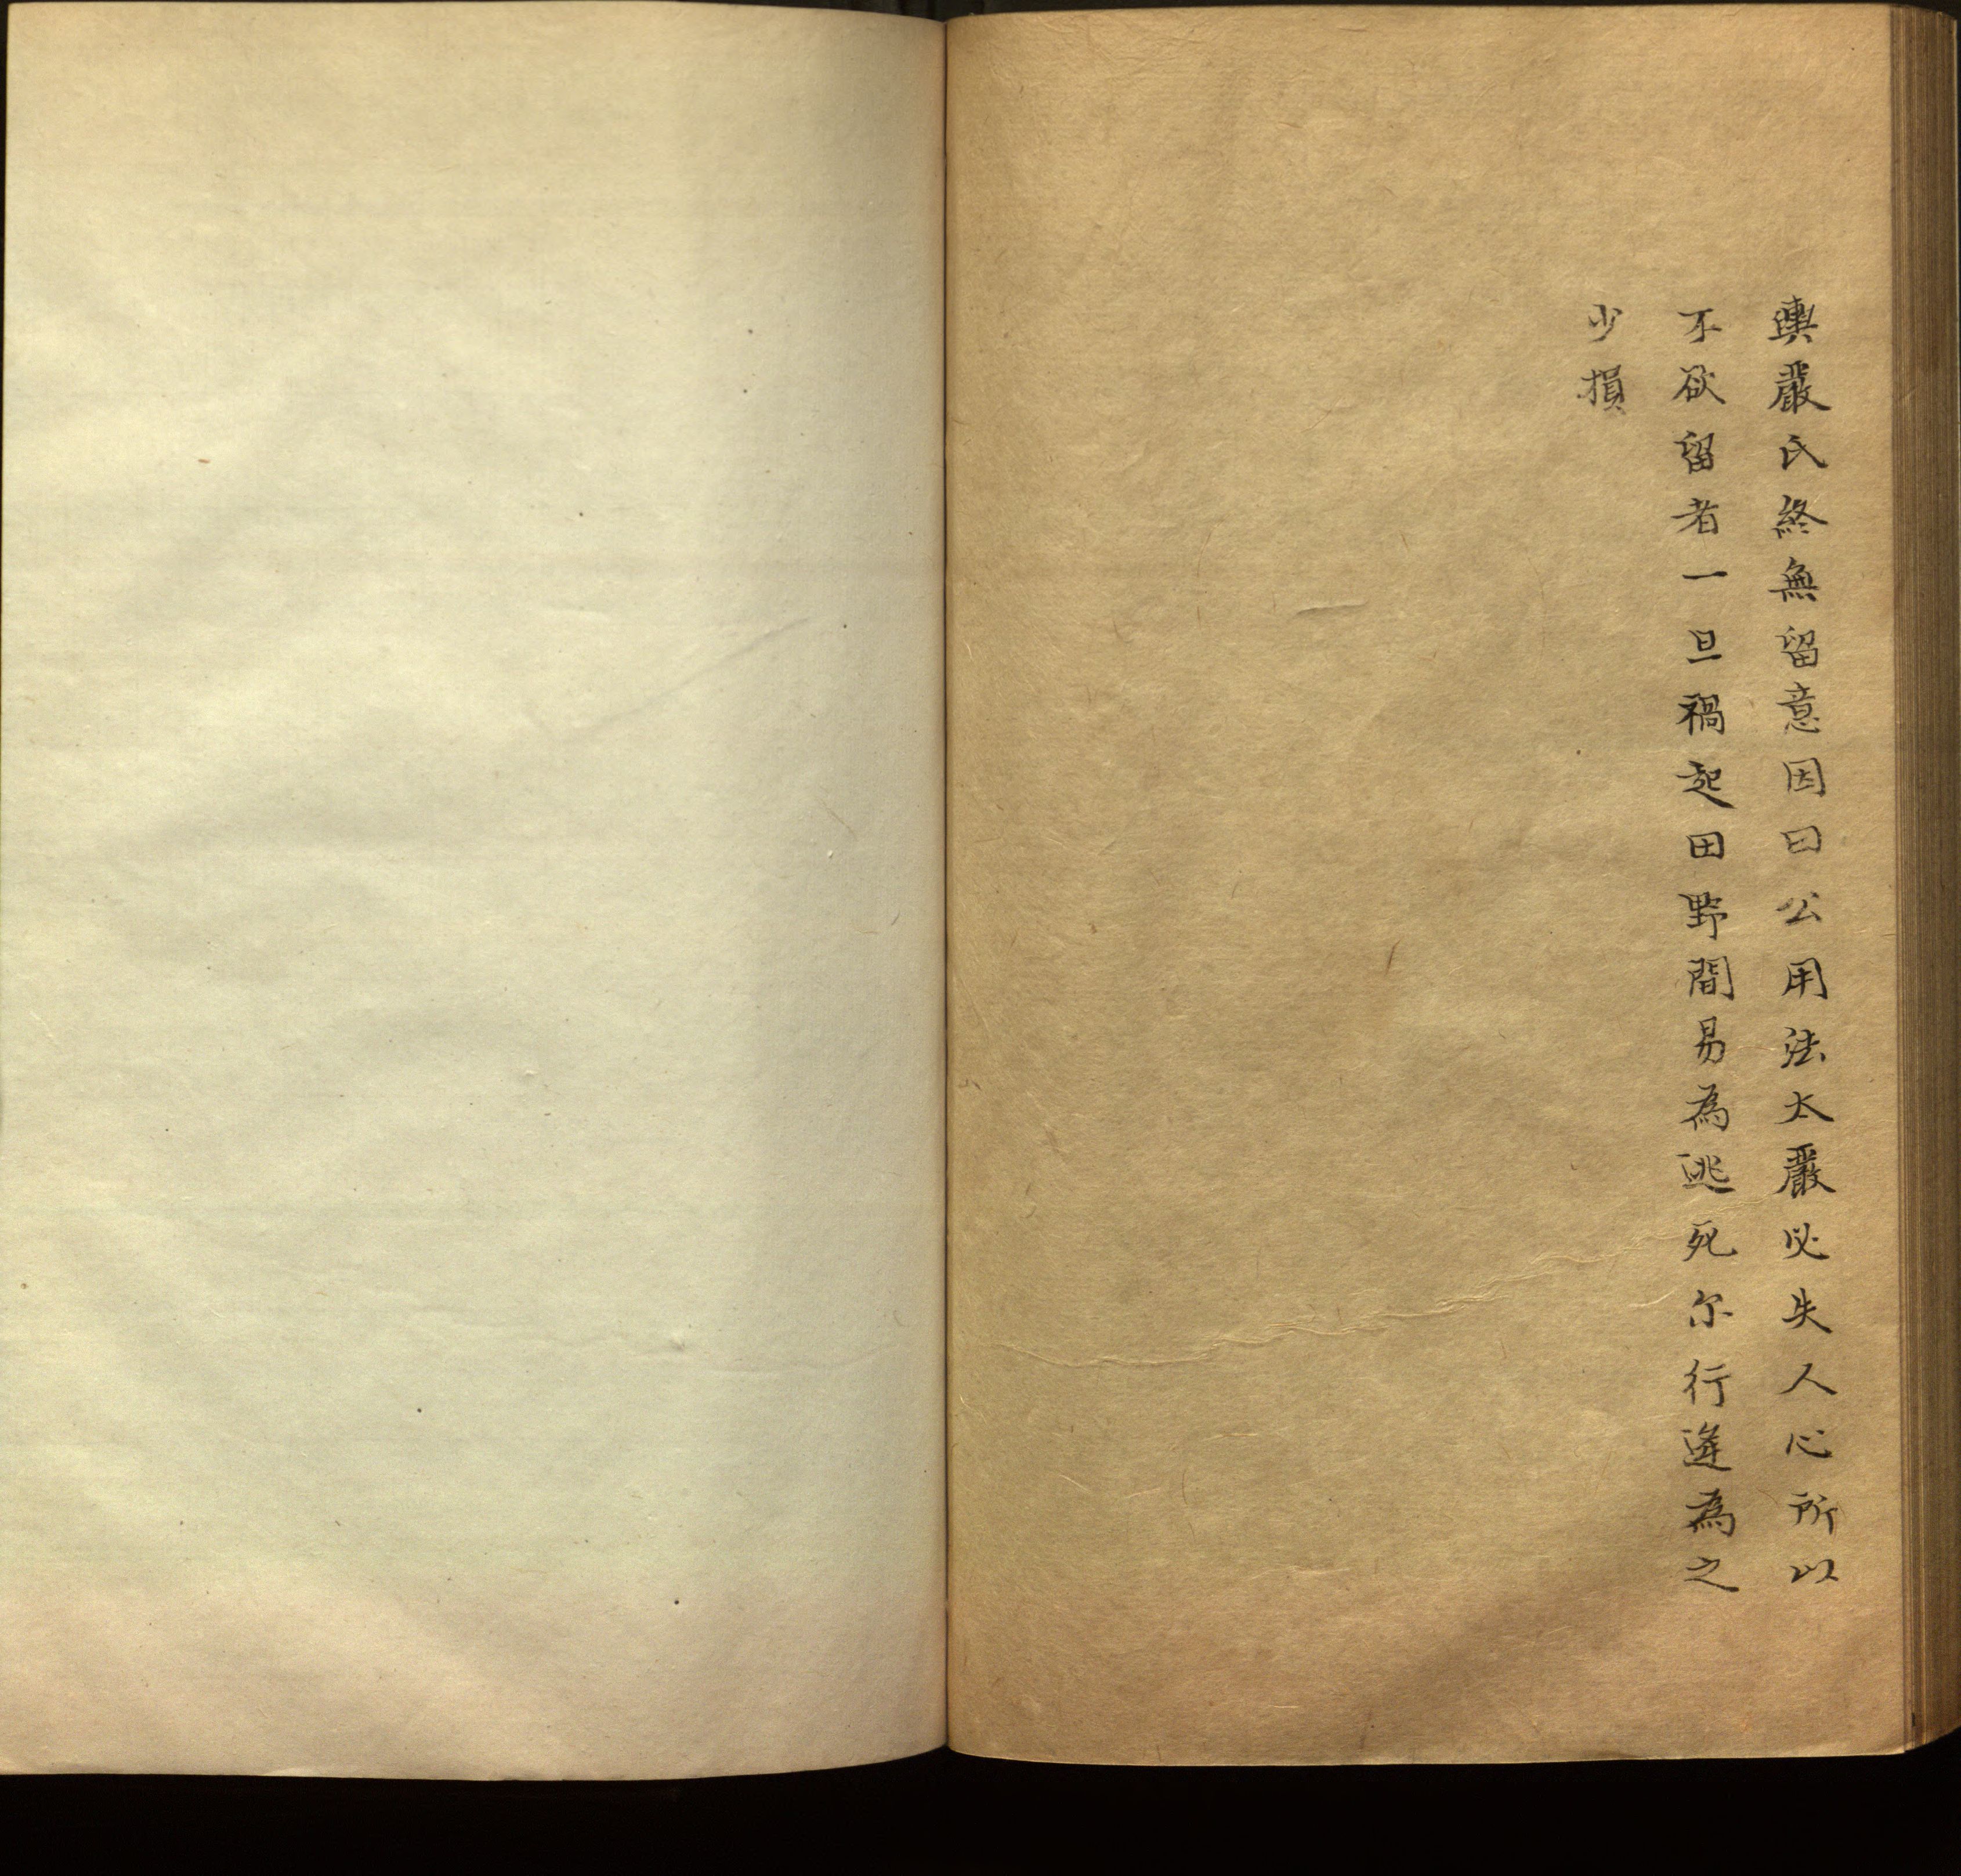 輿嚴氏終無留意因曰公用法太嚴必失人心所以
不欲留者一旦禍起田野間易為逃死尔行逢為之
少損